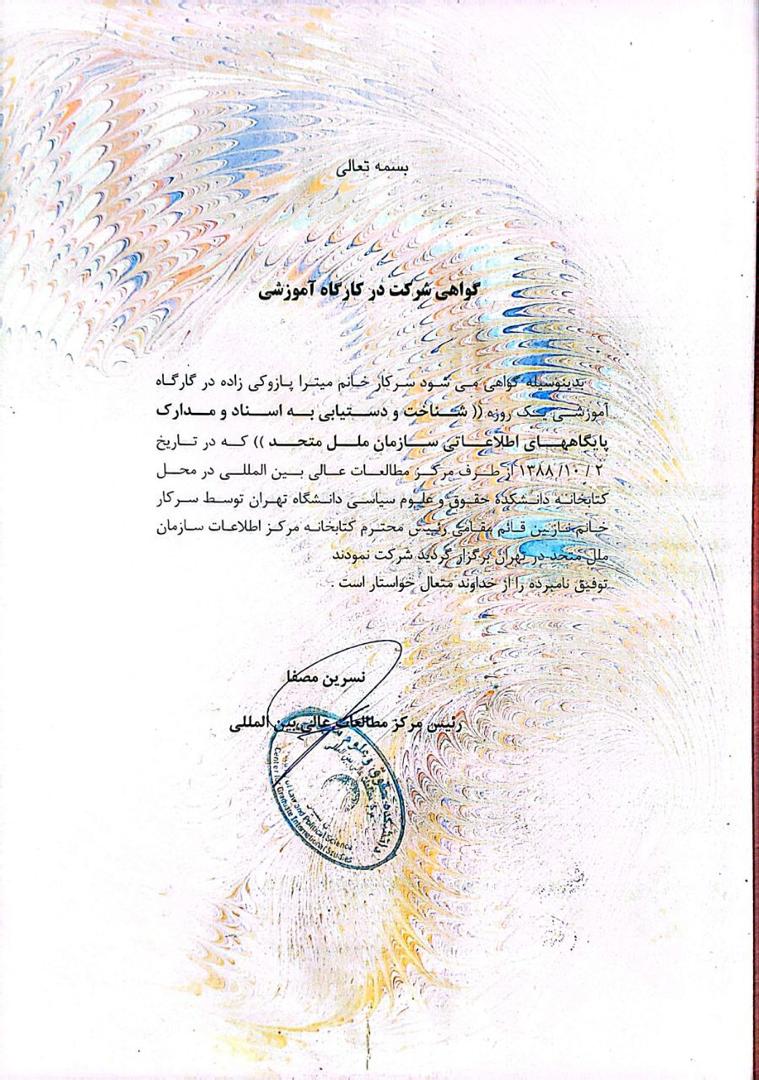 بسمه تعالی
گواهی شرکت در کارگاه آموزشی
بدینوسیله گواهی می شود سرکار خانم میترا پازوکی زاده در گارگاه
آموزشی یک روزه (( شناخت و دستیابی به اسناد و مدارک
پایگاههای اطلاعاتی سازمان ملل متحد )) که در تاریخ
۲ /۱۰ /۱۳۸۸ از طرف مرکز مطالعات عالی بین المللی در محل
کتابخانه دانشکده حقوق و علوم سیاسی دانشگاه تهران توسط سرکار
خانم نازنین قائم مقامی رئیس محترم کتابخانه مرکز اطلاعات سازمان
ملل متحد در تهران برگزار گردید شرکت نمودند
توفیق نامبرده را از خداوند متعال خواستار است .
نسرین مصفا
رئیس مرکز مطالعات عالی بین المللی
دانشکده حقوق و علوم
of Law and Political Science
Center Graduate International Studies